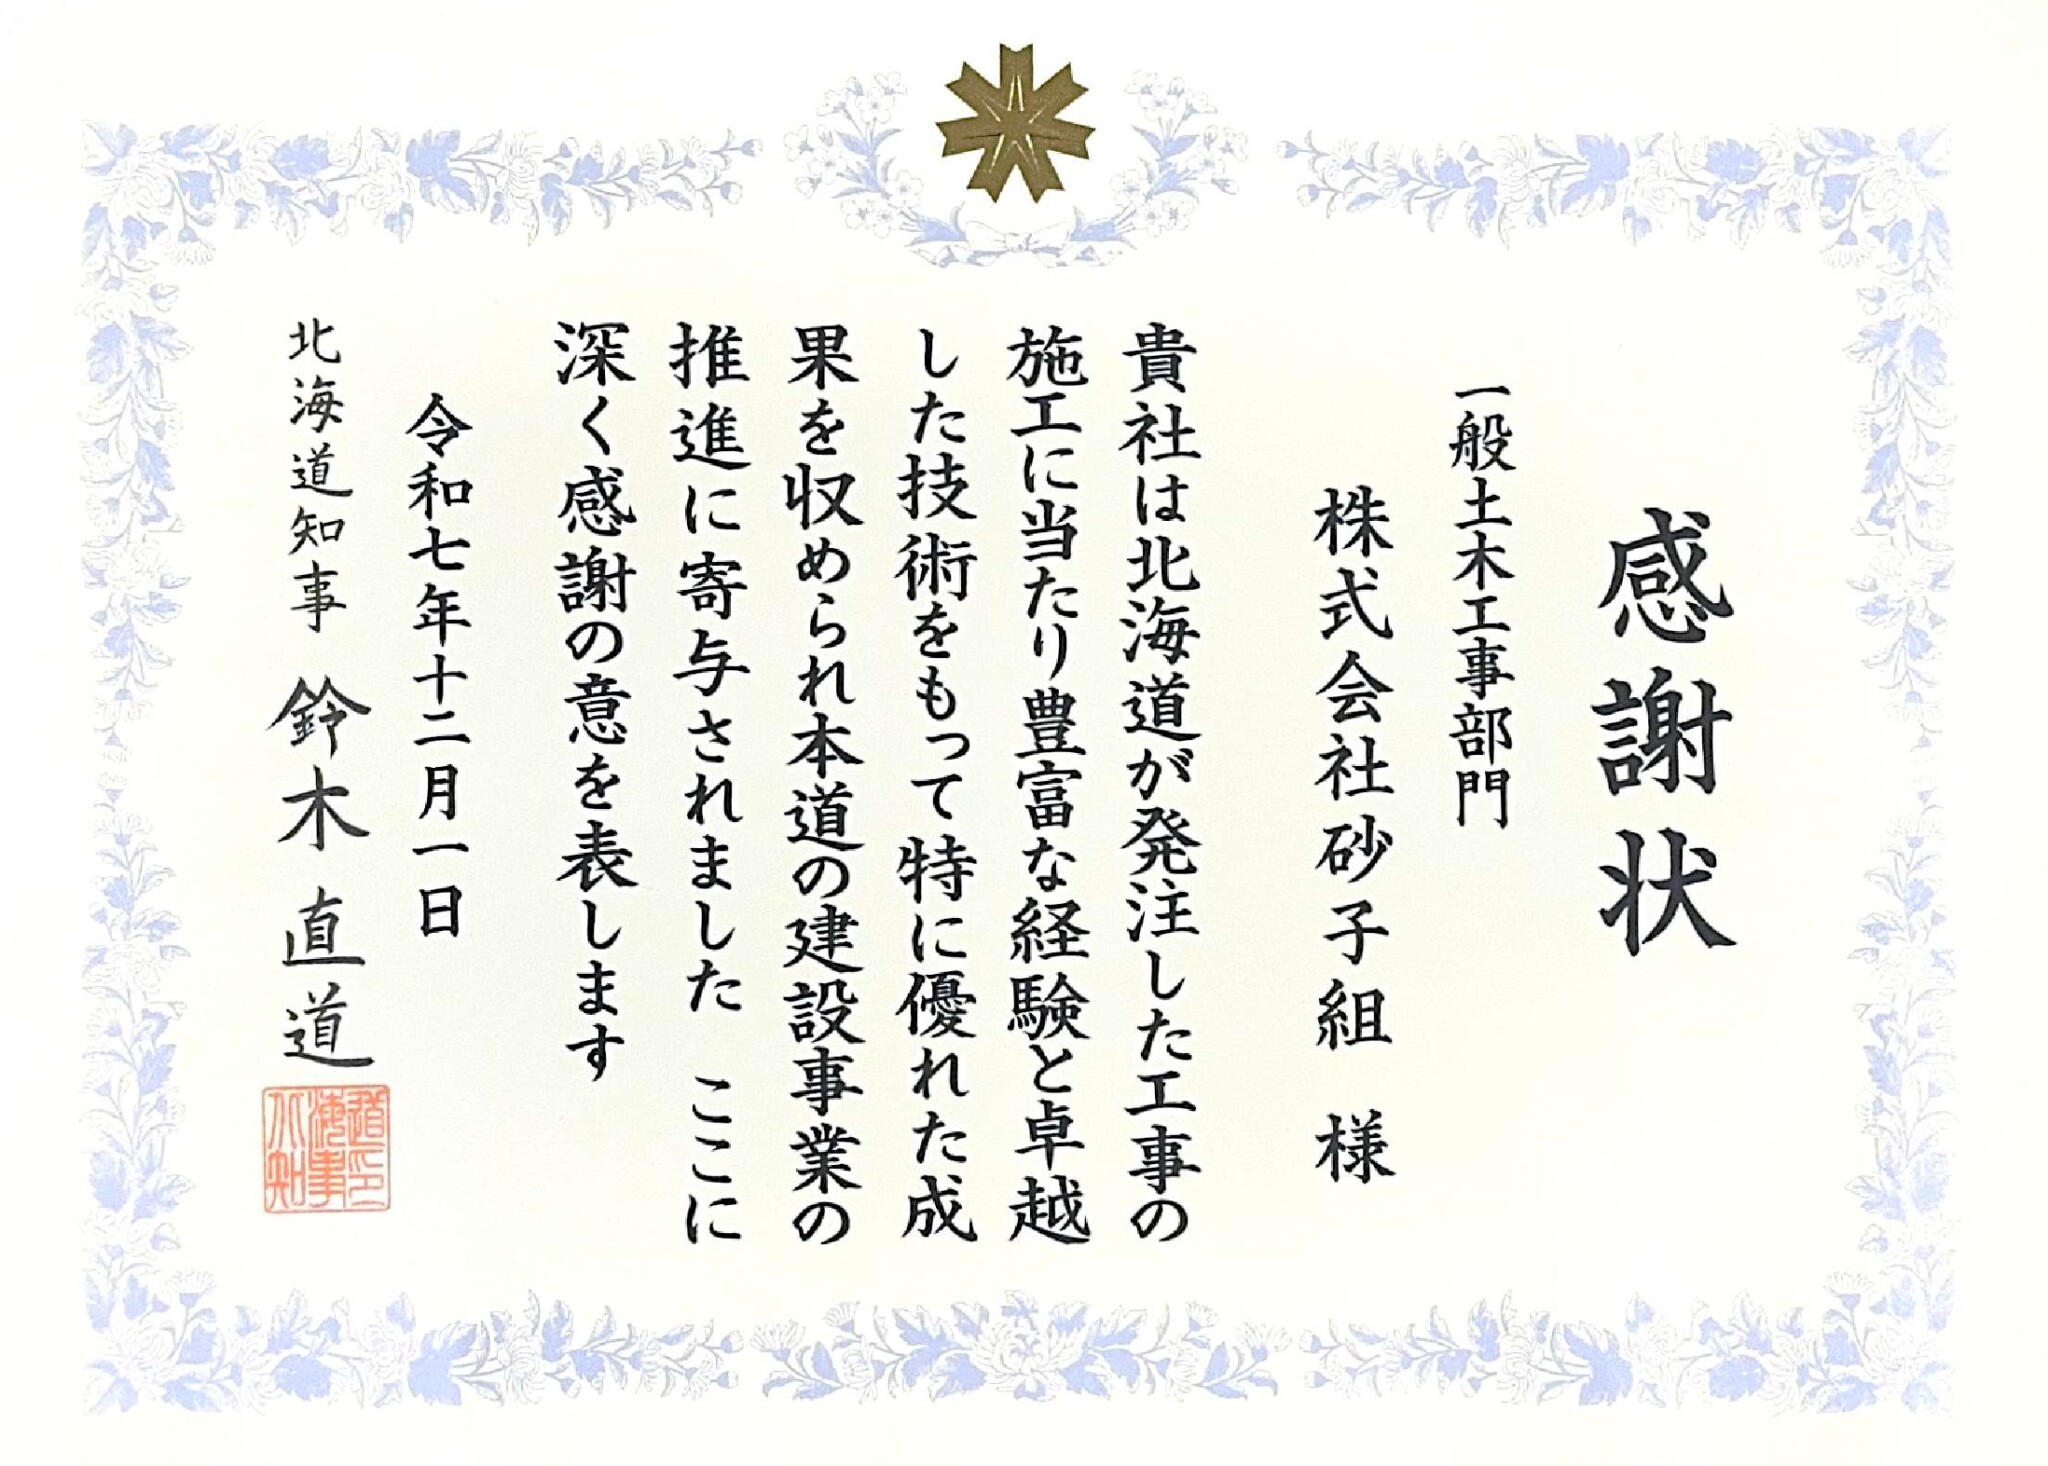 感謝状
一般土木工事部門
株式会社砂子組 様
貴社は北海道が発注した工事の
施工に当たり豊富な経験と卓越
した技術をもって特に優れた成
果を収められ本道の建設事業の
推進に寄与されました ここに
深く感謝の意を表します
令和七年十二月一日
北海道知事 鈴木直道
北海道知事印